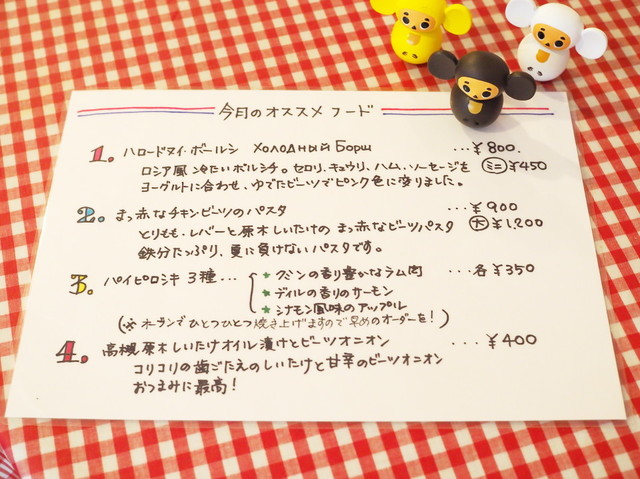 今月のオススメフード
1. ハロードヌイ・ボールシ ХОЛОДНЫЙ Борщ ...￥800.
ロシア風 冷たいボルシチ。セロリ、キュウリ、ハム、ソーセージを ミニ ￥450
ヨーグルトに合わせ、ゆでたビーツでピンク色に変りました。
2. まっ赤なチキンビーツのパスタ ...￥900
とりもも・レバーと原木しいたけの まっ赤なビーツパスタ 大 ￥1,200
鉄分たっぷり、夏に負けないパスタです。
3. パイピロシキ 3種... ★クミンの香り豊かなラム肉 ...各￥350
★ディルの香りのサーモン
★シナモン風味のアップル
(※オーブンでひとつひとつ焼き上げますので早めのオーダーを!)
4. 高槻原木しいたけオイル漬けとビーツオニオン ...￥400
コリコリの歯ごたえのしいたけと甘辛のビーツオニオン
おつまみに最高!